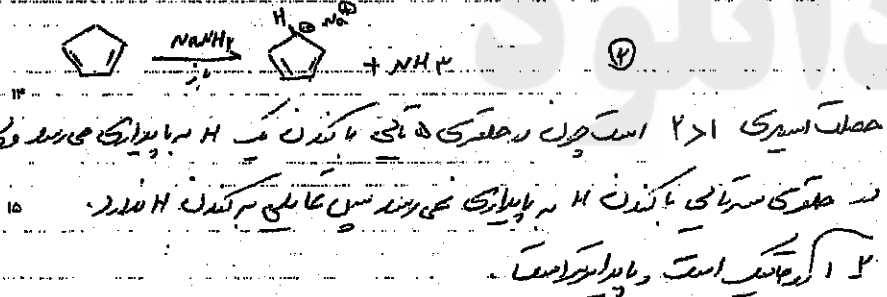 H Na⊕
NaNH۲
باز
⊖
+ NH۳
۲
۱۴
خصلت اسیدی ۱<۲ است چون در حلقه‌ی ۵ تایی با کندن یک H به پایداری می‌رسد ولی
در حلقه‌ی سه‌تایی با کندن H به پایداری نمی‌رسد پس تمایلی به کندن H ندارد.
۱۵
آروماتیک است و پایدارتر است.